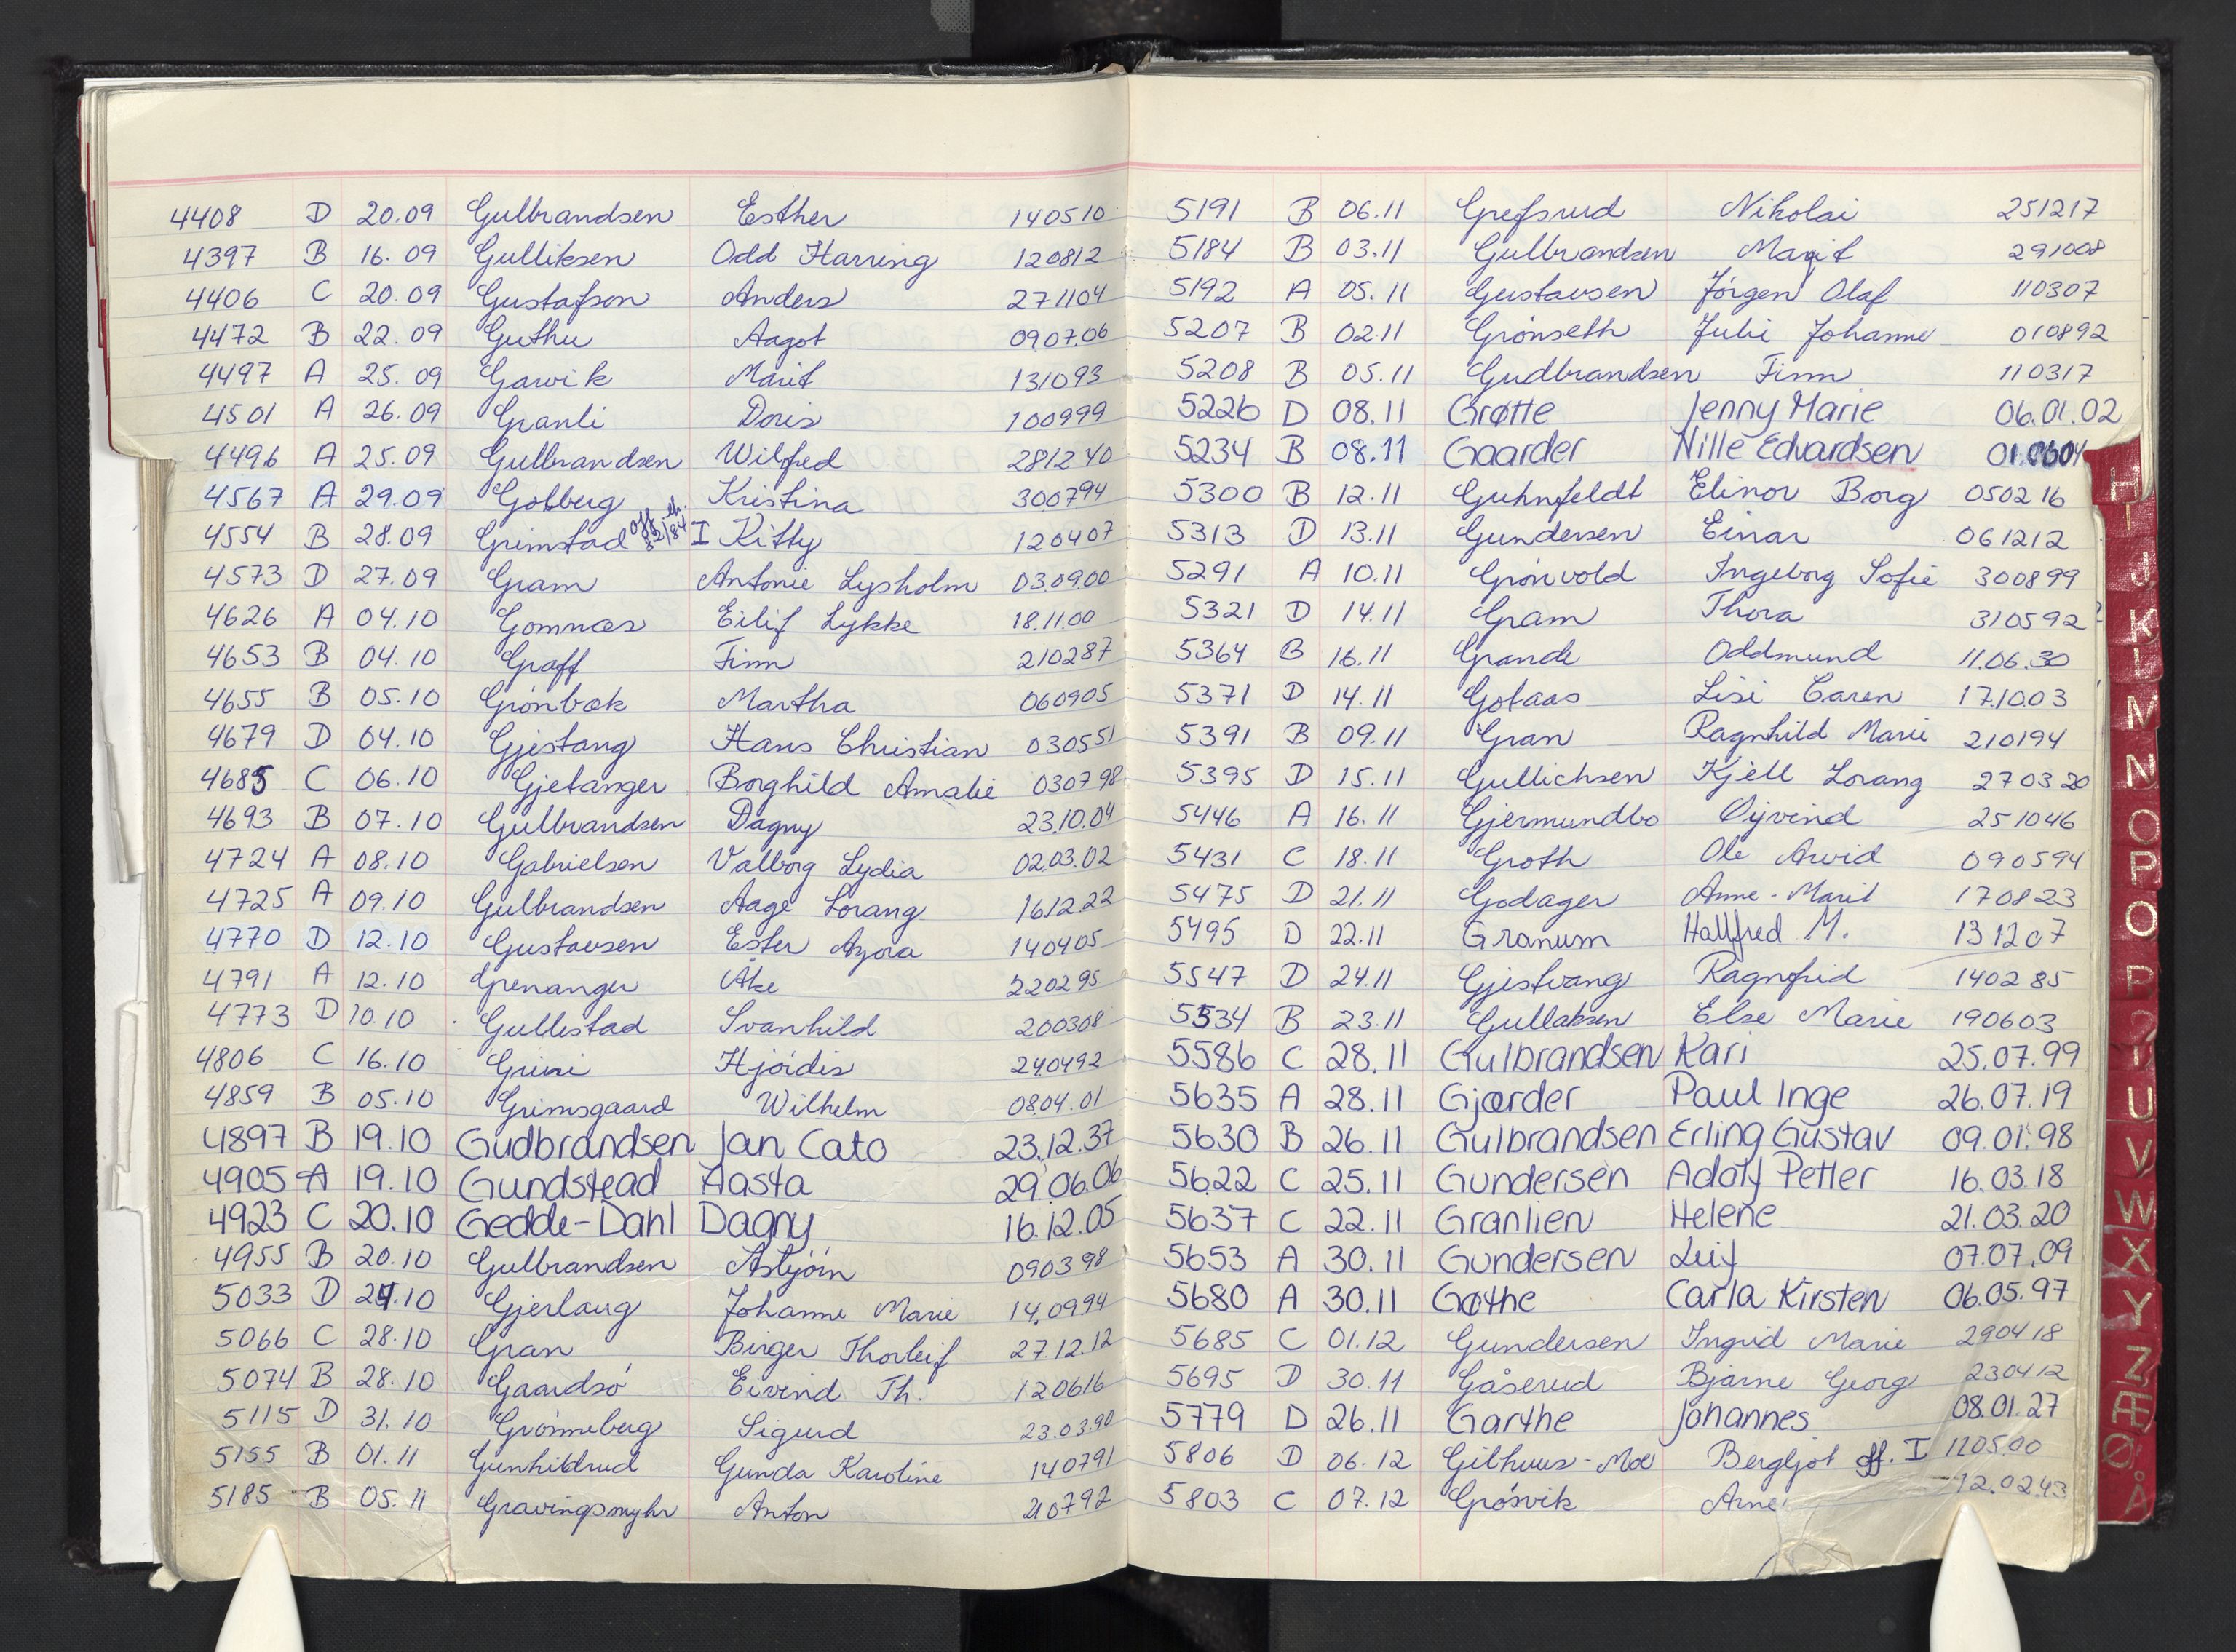 4408 D 20.09 Gulbrandsen Esther 140510
4397 B 16.09 Gulliksen Odd Harring 120812
4406 C 20.09 Gustafson Anders 271104
4472 B 22.09 Guthu Aagot 09.07.06
4497 A 25.09 Garvik Marit 131093
4501 A 26.09 Granli Doris 100999
4496 A 25.09 Gulbrandsen Wilfred 281240
4567 A 29.09 Golberg Kristina 300794
4554 B 28.09 Grimstad I Kitty 120407
4573 D 27.09 Gram Antonie Lysholm 03.09.00
4626 A 04.10 Gomnæs Eilif Lykke 18.11.00
4653 B 04.10 Graff Finn 210287
4655 B 05.10 Grönbæk Martha 060905
4679 D 04.10 Gjestang Hans Christian 030551
4685 C 06.10 Gjetanger Borghild Amalie 030798
4693 B 07.10 Gulbrandsen Dagny 23.10.04
4724 A 08.10 Gabrielsen Valborg Lydia 02.03.02
4725 A 09.10 Gulbrandsen Aage Lorang 16.12.22
4770 D 12.10 Gustavsen Ester Agora 140405
4791 A 12.10 Grenanger Åke 220295
4773 D 10.10 Gullestad Svanhild 200308
4806 C 16.10 Grini Hjördis 240492
4859 B 05.10 Grimsgaard Wilhelm 08.04.01
4897 B 19.10 Gudbrandsen Jan Cato 23.12.37
4905 A 19.10 Gundstead Aasta 29.06.06
4923 C 20.10 Gedde-Dahl Dagny 16.12.05
4955 B 20.10 Gulbrandsen Asbjörn 090398
5033 D 24.10 Gjerlaug Johanne Marie 14.09.94
5066 C 28.10 Gran Birger Thorleif 27.12.12
5074 B 28.10 Gaardsö Eivind Th. 120616
5115 D 31.10 Grönneberg Sigurd 23.03.90
5155 B 01.11 Gunhildrud Gunda Karoline 140791
5185 B 05.11 Gravingsmyhr Anton 210792
5191 B 06.11 Grefsrud Nikolai 251217
5184 B 03.11 Gulbrandsen Marit 291008
5192 A 05.11 Gustavsen Jörgen Olaf 110307
5207 B 02.11 Grönseth Julie Johanne 010892
5208 B 05.11 Gudbrandsen Finn 110317
5226 D 08.11 Grøtte Jenny Marie 06.01.02
5234 B 08.11 Gaarder Nille Edvardsen 01.0604
5300 B 12.11 Guhnfeldt Elinor Borg 050216
5313 D 13.11 Gundersen Einar 061212
5291 A 10.11 Grönvold Ingeborg Sofie 300899
5321 D 14.11 Gram Thora 310592
5364 B 16.11 Grande Oddmund 11.06.30
5371 D 14.11 Gotaas Lisi Caren 17.10.03
5391 B 09.11 Gran Ragnhild Marie 210194
5395 D 15.11 Gullichsen Kjell Lorang 270320
5446 A 16.11 Gjermundbo Øyvind 251046
5431 C 18.11 Groth Ole Arvid 090594
5475 D 21.11 Godager Anne-Marit 170823
5495 D 22.11 Granum Hallfred M. 131207
5547 D 24.11 Gjestvang Ragnfrid 140285
5534 B 23.11 Gullaksen Else Marie 190603
5586 C 28.11 Gulbrandsen Kari 25.07.99
5635 A 28.11 Gjærder Paul Inge 26.07.19
5630 B 26.11 Gulbrandsen Erling Gustav 09.01.98
5622 C 25.11 Gundersen Adolf Petter 16.03.18
5637 C 22.11 Granlien Helene 21.03.20
5653 A 30.11 Gundersen Leif 07.07.09
5680 A 30.11 Gøthe Carla Kirsten 06.05.97
5685 C 01.12 Gundersen Ingrid Marie 290418
5695 D 30.11 Gåserud Bjarne Georg 230412
5779 D 26.11 Garthe Johannes 08.01.27
5806 D 06.12 Gilhuus-Moe Bergljot off. I 120500
5803 C 07.12 Grösvik Arne 12.02.43
H
I
J
K
L
M
N
O
P
U
V
W
X
Y
Z
Æ
Ø
Å